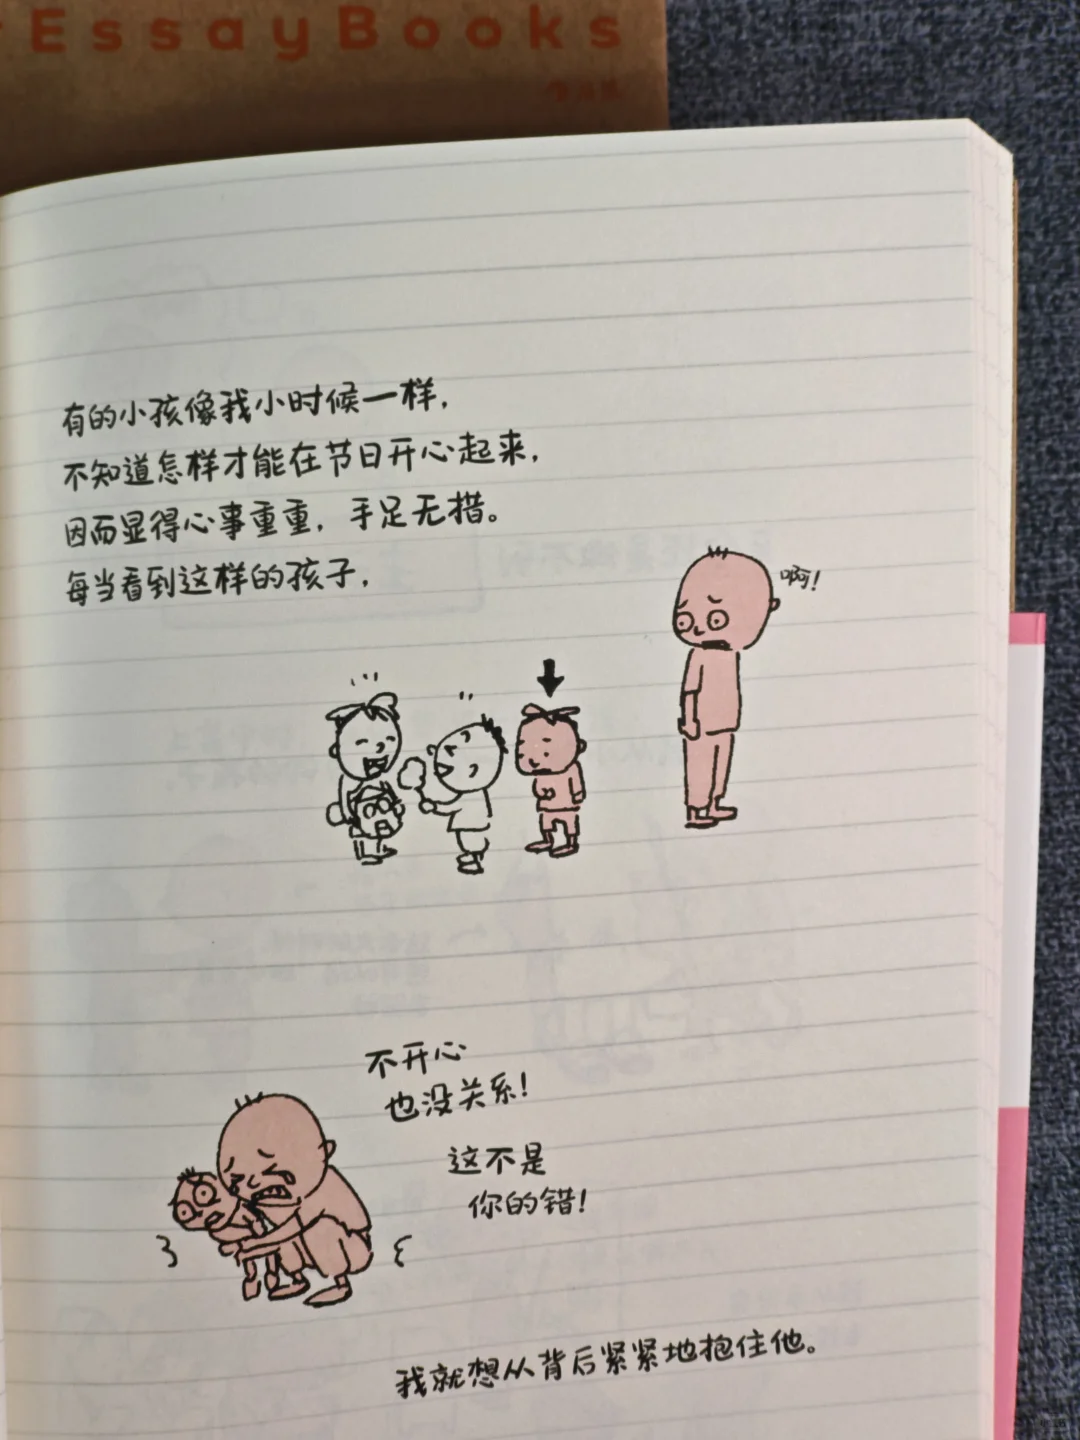 EssayBooks
有的小孩像我小时候一样，
不知道怎样才能在节日开心起来，
因而显得心事重重，手足无措。
每当看到这样的孩子，
啊！
不开心
也没关系！
这不是
你的错！
我就想从背后紧紧地抱住他。